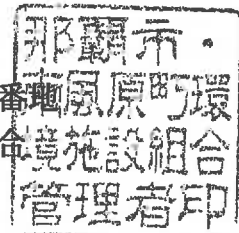 那覇市・
番地
南風原町環
合
境施設組合
管理者印